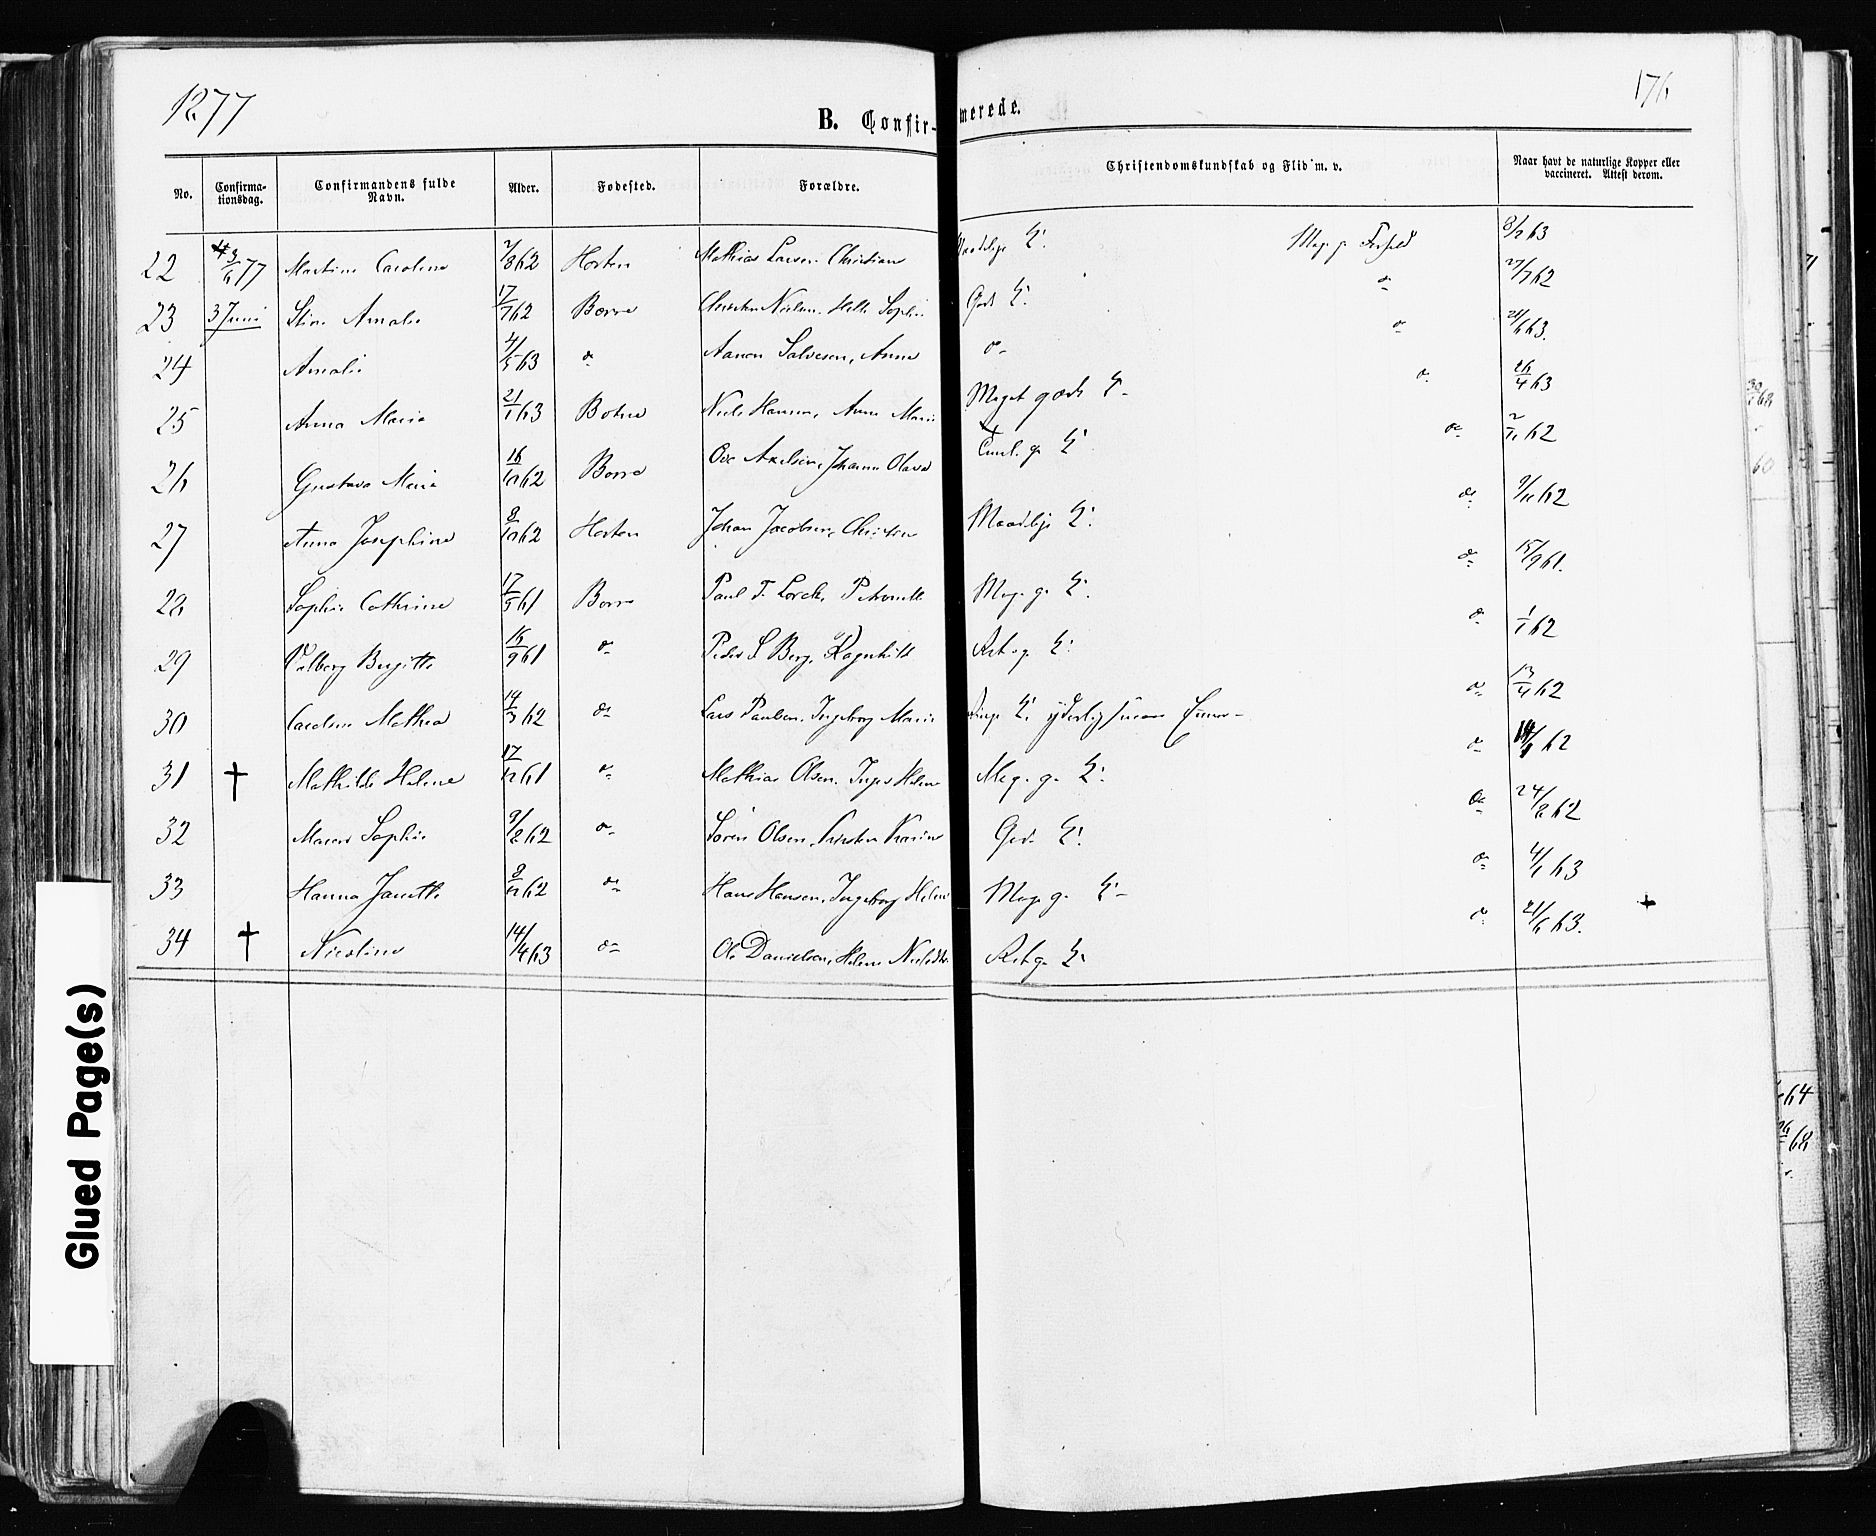 1877
176
B. Confir-merede.
No. Confirma-tionsdag. Confirmandens fulde Navn. Alder. Fødested. Forældre. Christendomskundskab og Flid m. v. Naar havt de naturlige Kopper eller vaccineret. Attest derom.
22 3/6 77 Martine Caroline 2/8 62 Horten Mathias Larsen Christiane Maadelige K. Meg. g. Forhold 8/2 63
23 3 Juni Stine Amalie 17/7 62 Borre Christen Nielsen, Helle Sophie Gode K. do 27/7 62
24 Amalie 4/5 63 do Aanon Salvesen, Anne do do 21/6 63.
25 Anna Marie 21/1 63 Botne Niels Hansen, Anne Marie Meget gode K. do 26/4 63
26 Gustava Marie 16/10 62 Borre Ole Axelsen, Johanne Olava g. K. do 62
27 Anna Josephine 8/10 62 Horten Johan Jacobsen, Christine Maadelige K. do 9/11 62
28 Sophie Cathrine 17/5 61 Borre Paul F. Lorck, Petronelle Meg. g. K. do 15/9 61.
29 Valborg Birgitte 15/9 61 do Peder S Berg, Ragnhild Ret g. K. do 1/1 62
30 Caroline Mathea 14/3 62 do Lars Paulsen, Ingeborg Marie K. yderlig do 13/4 62
31 † Mathilde Helene 17/12 61 do Mathias Olsen, Inger Helene Meg. g. K. do 62
32 Maren Sophie 9/2 62 do Søren Olsen, Kirsten Karine God K. do 24/8 62
33 Hanna Janette 8/12 62 do Hans Hansen, Ingeborg Helene Meg. g. K. do 4/1 63
34 † Nicoline 14/4 63 do Ole Danielsen, Helene Ret g. K. do 21/6 63. +
Glued Page(s)